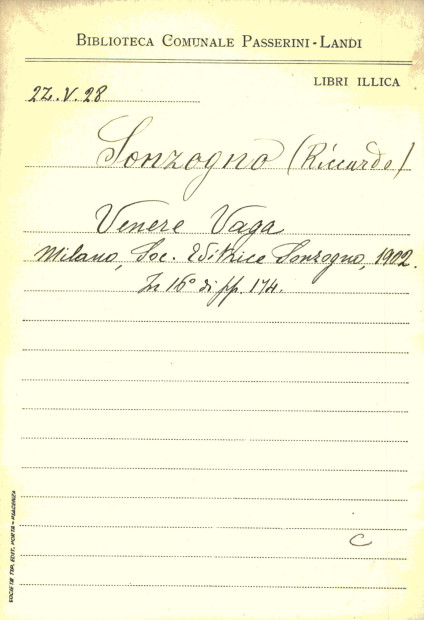 BIBLIOTECA COMUNALE PASSERINI-LANDI
LIBRI ILLICA
2Z.V.28
Sonzogno (Riccardo)
Venere Vaga
Milano, Soc. Editrice Sonzogno, 1902.
In 16° di pp. 174.
C
SOCIETÀ TIP. EDIT. PORTA - PIACENZA